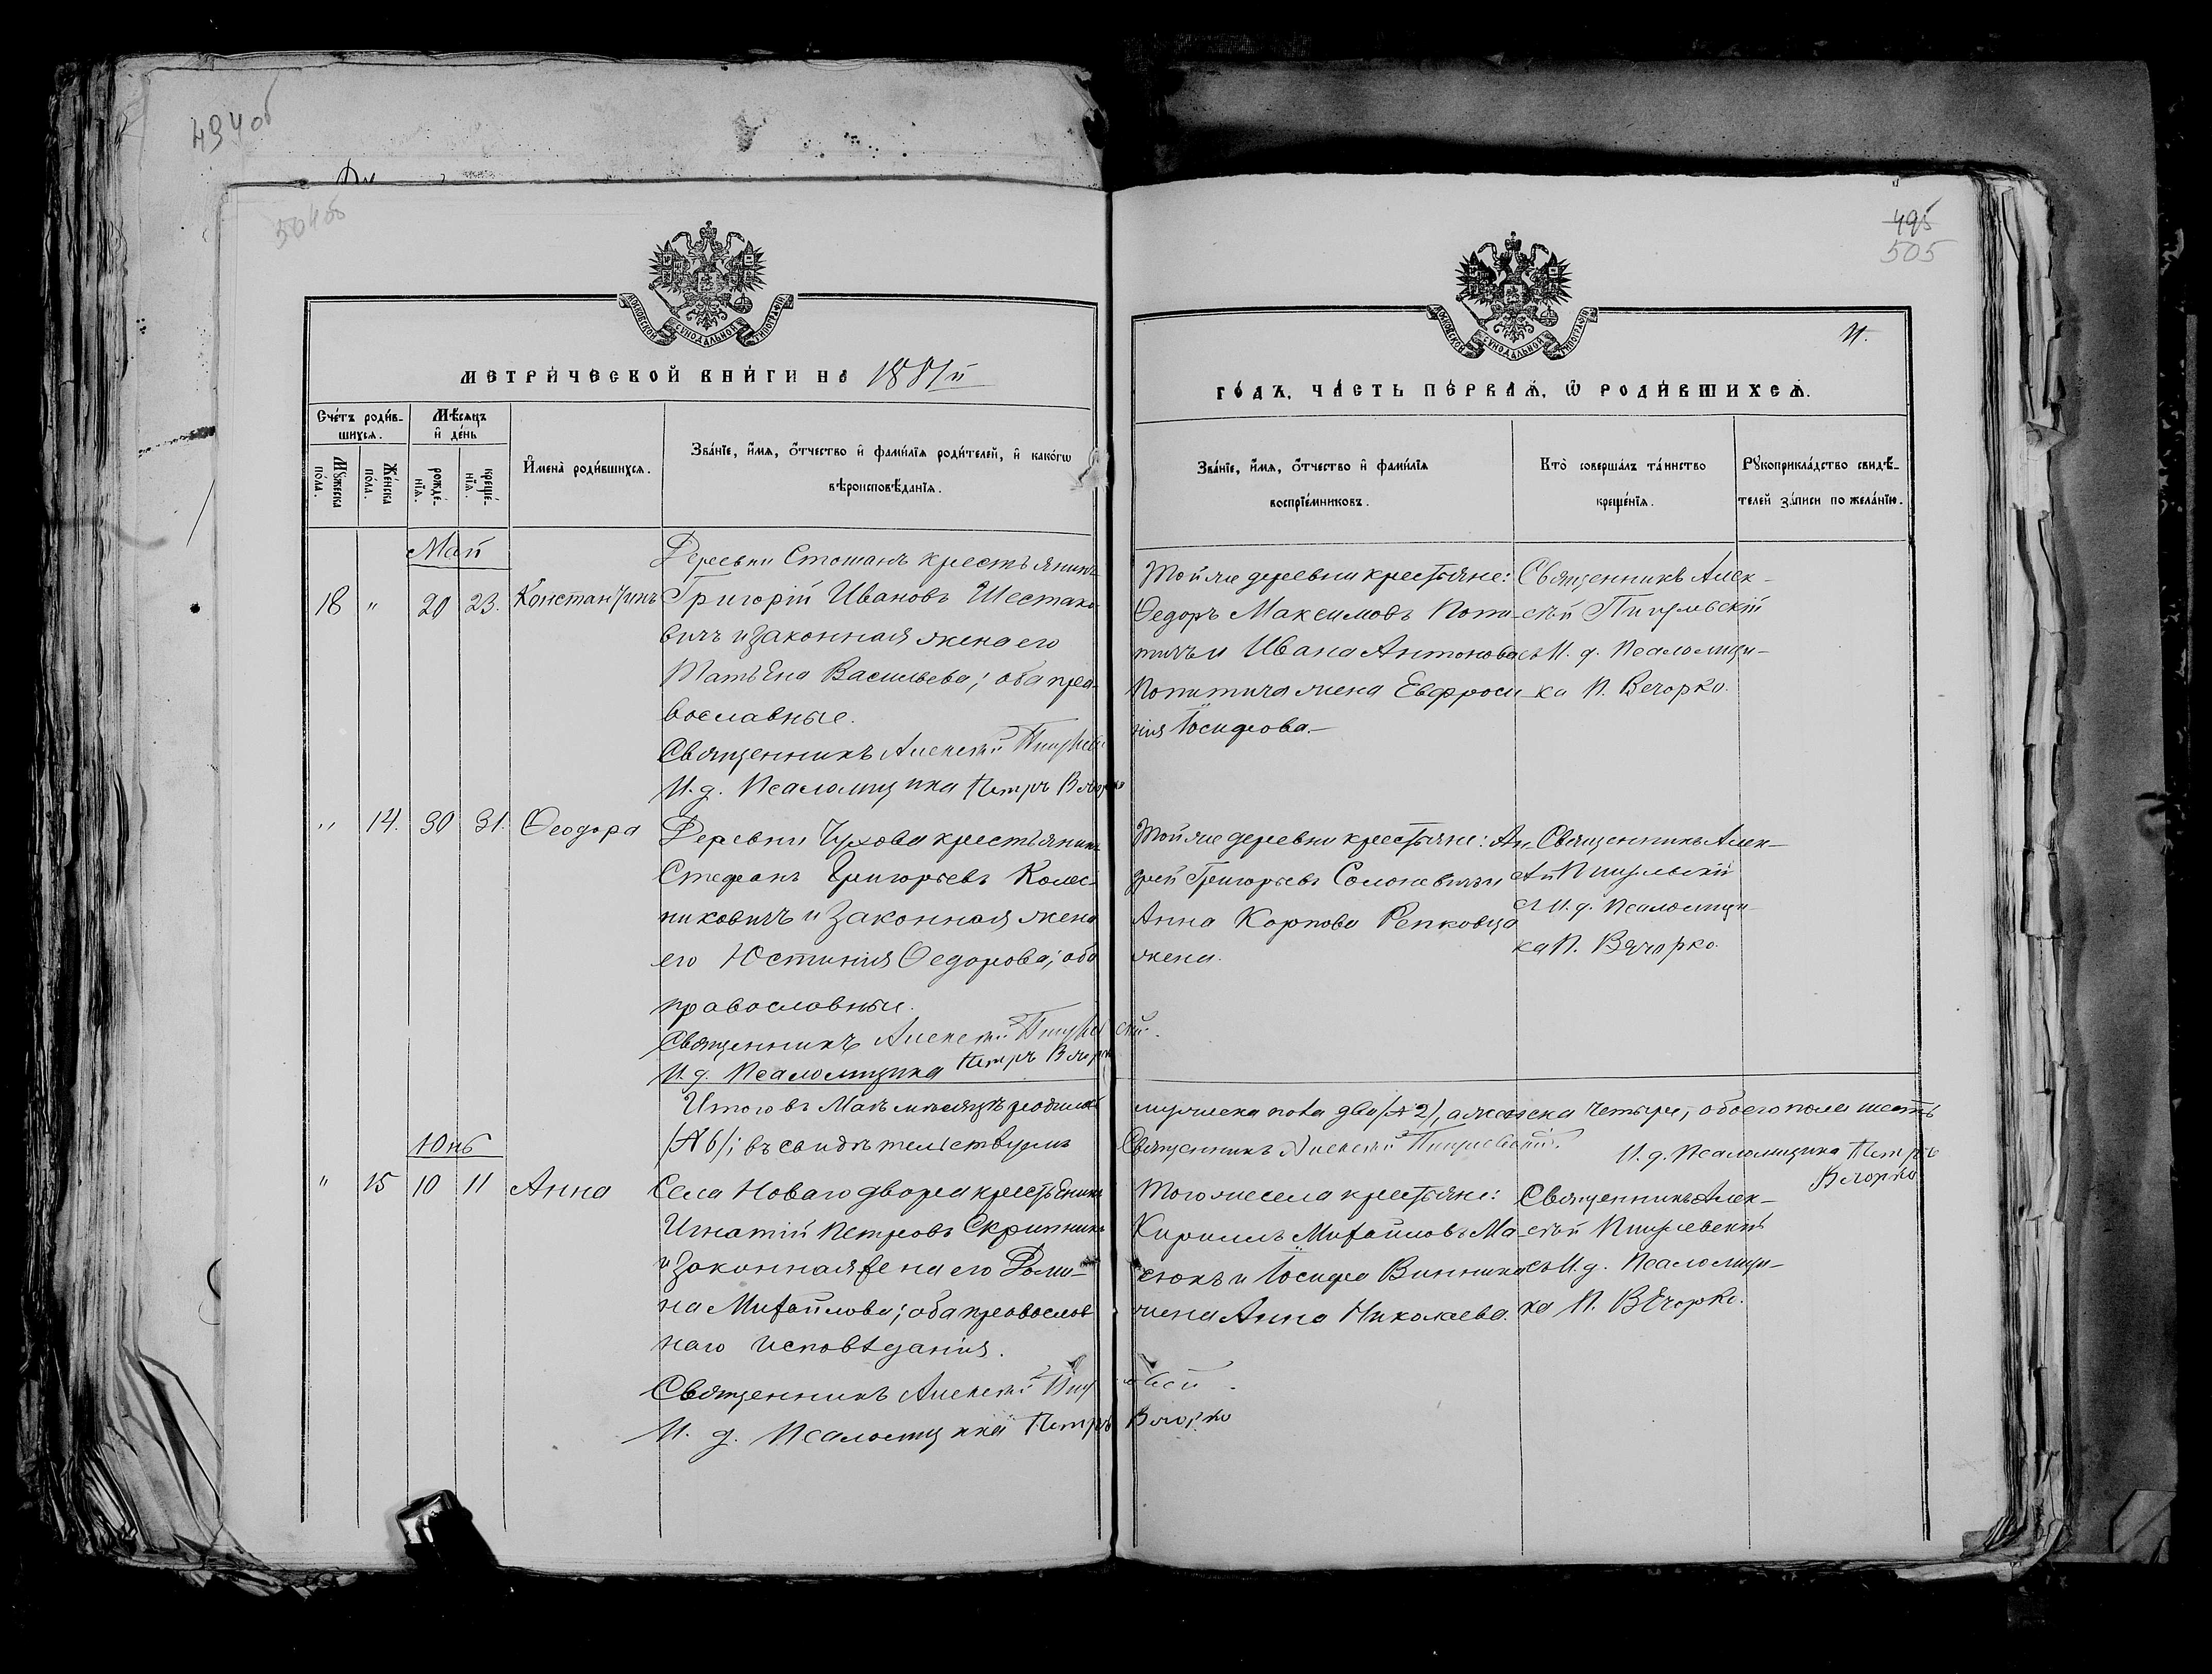 494 об
504 об
495
505
11.
МОСКОВСКОЙ СУНОДАЛЬНОЙ ТИПОГРАФІИ
МОСКОВСКОЙ СУНОДАЛЬНОЙ ТИПОГРАФІИ
МЕТРИ́ЧЕСКОЙ КНИ́ГИ НА 1881й
ГО́ДЪ, ЧА́СТЬ ПЕ́РВАЯ, Ѡ РОДИ́ВШИХСЯ.
Сче́тъ роди́в-
шихся.
Мѣ́сяцъ
и де́нь
Мꙋжеска
по́ла.
Же́нска
по́ла.
рожде́-
нїѧ.
креще́-
нїѧ.
И҆мена̀ роди́вшихся.
Зва́нїе, и҆́мѧ, ѻ҆́тчество и҆ фами́лїѧ роди́телей, и҆ како́гѡ
вѣроисповѣ́данїѧ.
Зва́нїе, и҆́мѧ, ѻ҆́тчество и҆ фами́лїѧ
воспрїе́мниковъ.
Кто̀ соверша́лъ та́инство
креще́нїѧ.
Рꙋкоприкла́дство свидѣ́-
телей за́писи по жела́нїю.
Май
18 " 20 23. Константинъ
Деревни Стошанъ крестьянинъ
Григорій Ивановъ Шестако-
вичъ и законная жена его
Татьяна Васильева; оба пра-
вославные.
Священникъ Алексѣй
И. д. Псаломщика Петръ Вечорко
Той же деревни крестьяне:
Ѳедоръ Максимовъ Попи-
тичъ и Ивана Антонова
Попитича жена Евфроси-
нія Іосифова.
Священникъ Алек-
сѣй
съ И. д. Псаломщи-
ка П. Вечорко.
" 14. 30 31. Ѳеодора
Деревни Чухова крестьянинъ
Стефанъ Григорьевъ Колес-
никовичъ и законная жена
его Юстинія Ѳедорова; оба
православные.
Священникъ Алексѣй
И. д. Псаломщика Петръ Вечорко
Той же деревни крестьяне: Ан-
дрей Григорьевъ Солоневичъ и
Анна Карпова Репковца
жена.
Священникъ Алек-
сѣй
съ И. д. Псаломщи-
ка П. Вечорко.
Итого въ Маѣ мѣсяцѣ родилось мужеска пола два (№ 2), а женска четыре, обоего пола шесть
(№ 6); въ семъ свидѣтельствуемъ Священникъ Алексѣй
И. д. Псаломщика Петръ
Вечорко
Юнь
" 15 10 11 Анна
Села Новаго двора крестьянинъ
Игнатій Петровъ Скрипникъ
и законная жена его Доми-
на Михайлова; оба православ-
наго исповѣданія.
Священникъ Алексѣй
И. д. Псаломщика Петръ Вечорко
Того же села крестьяне:
Кириллъ Михайловъ Ма-
сюкъ и Іосифа Винника
жена Анна Николаева.
Священникъ Алек-
сѣй
съ И. д. Псаломщи-
ка П. Вечорко.